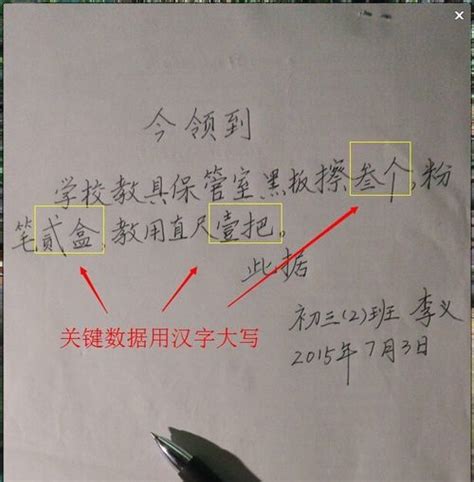 今领到
学校教具保管室黑板擦叁个,粉
笔贰盒,教用直尺壹把。
此据
关键数据用汉字大写
初三(2)班 李义
2015年7月3日